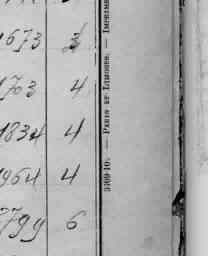 1673 3
1703 4
1834 4
1964 4
2799 6
3309-10. — PARIS ET LIMOGES. — IMPRIME